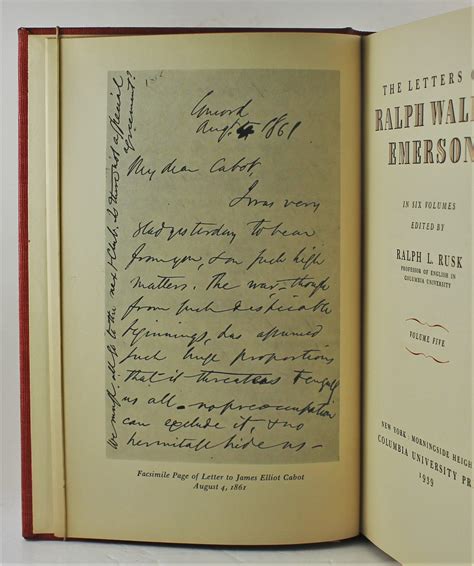 We must all go to the next Club. Is there not a special
agreement?
Concord
Aug. 4 1861
My dear Cabot,
I was very
glad yesterday to hear
from you, & on such high
matters. The war,—though
from such despicable
beginnings, has assumed
such huge proportions
that it threatens to engulf
us all—no preoccupation
can exclude it, & no
hermitage hide us—
Facsimile Page of Letter to James Elliot Cabot
August 4, 1861
THE LETTERS O
RALPH WAL
EMERSON
IN SIX VOLUMES
EDITED BY
RALPH L. RUSK
PROFESSOR OF ENGLISH IN
COLUMBIA UNIVERSITY
VOLUME FIVE
NEW YORK · MORNINGSIDE HEIGH
COLUMBIA UNIVERSITY PR
1939